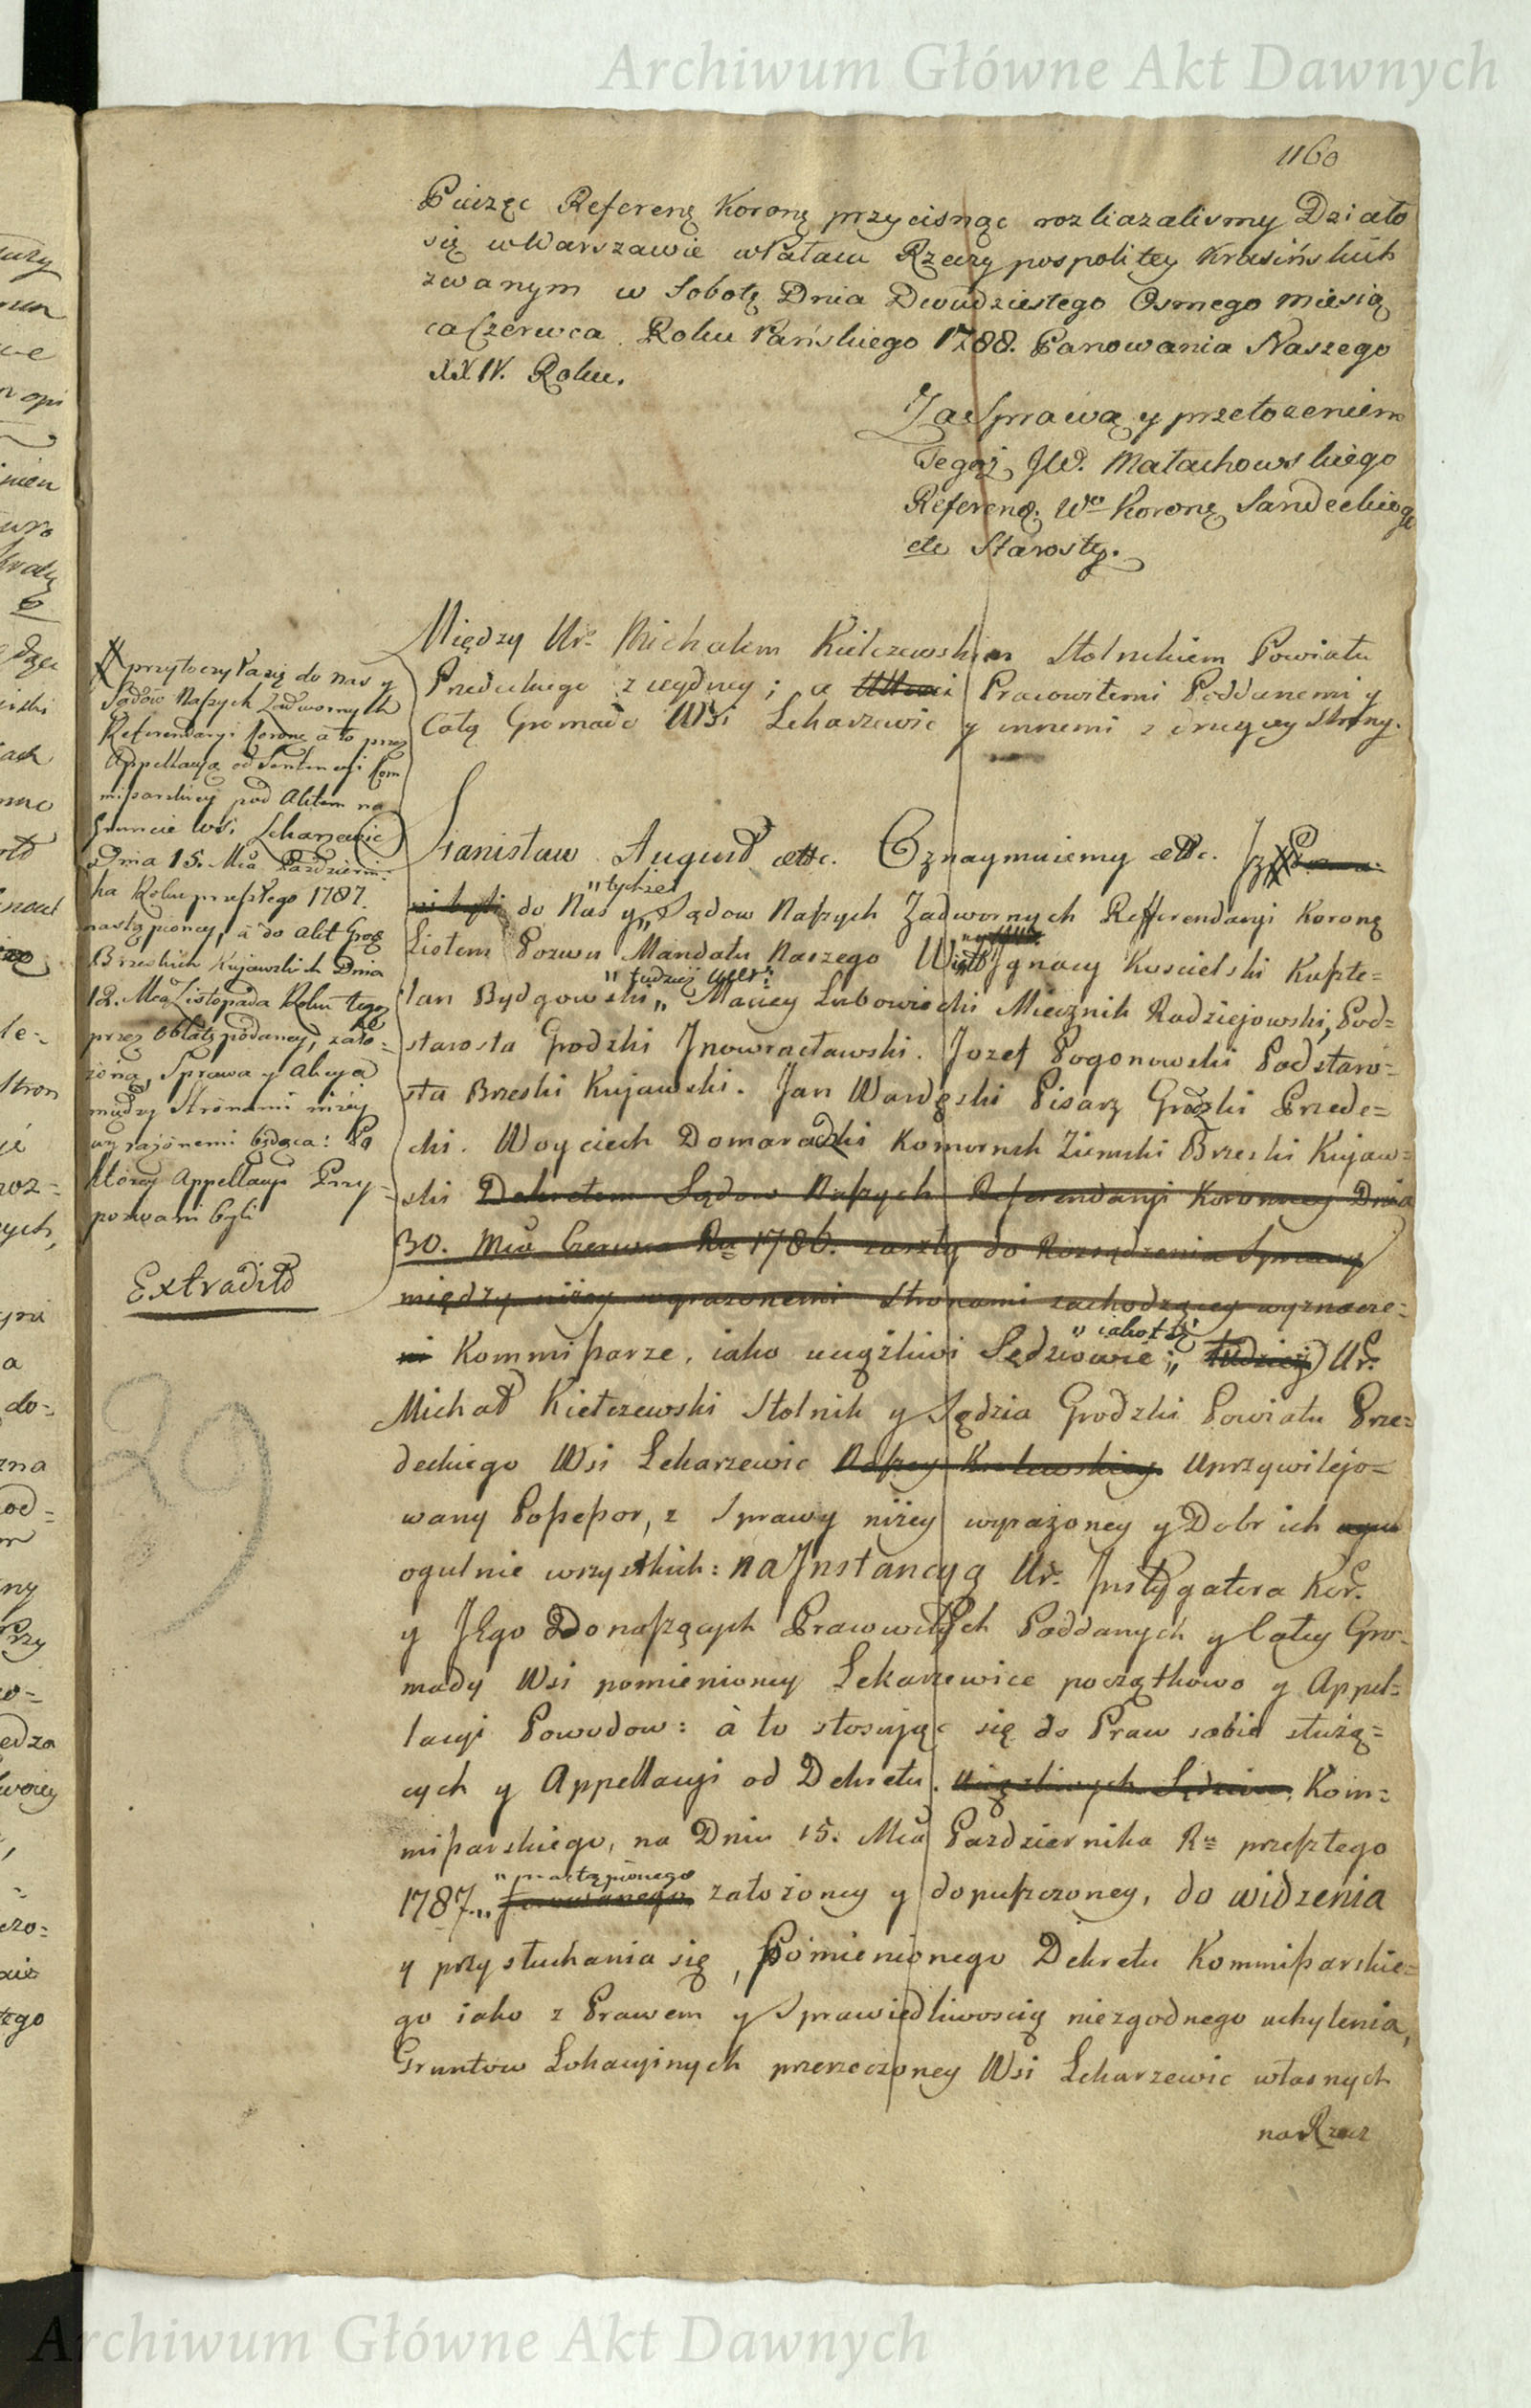 Archiwum Główne Akt Dawnych
1160
Pieczęć Referenị Koronị przycisnąc rozkazalismy Działo
się w Warszawie w Pałacu Rzeczy pospolitey Krasińskich
zwanym w Sobotę Dnia Dwudziestego Osmego Miesią
ca Czerwca Roku Pańskiego 1788. Panowania Naszego
XXIV. Roku.
Za Sprawą y przełożeniem
Tegoż JW. Małachowskiego
Referenḍ. Wgo Koronị Sandeckiego
etc Starosty.
Między Ur. Michałem Kiełczewskim Stolnikiem Powiatu
Przedeckiego z iedney; a Pracowitemi Poddanemi y
Całą Gromadą Wsi Lekarzewic y innemi z drugiey Strony.
Stanisław August etc. Oznaymuiemy etc. Iż
do Nas y „tychże Sądow Naszych Zadwornych Refferendaryi Koronị
Listem Pozwu Mandatu Naszego Ignacy Koscielski Kaszte=
lan Bydgowski „ tudzież Maciey Lubowiecki Miecznik Radziejowski, Pod=
starosta Grodzki Jnowracławski. Jozef Pogonowski Podstaro=
sta Brzeski Kujawski. Jan Wardęski Pisarz Grodzki Przede=
cki. Woyciech Domaradzki Komornik Ziemski Brzeski Kujaw=
ski Dekretem Sądow Naszych Referendaryi Koronney Dnia
30. Mca Czerwca Ru 1786. zaszły do Rozsądzenia Sprawy
między niżey wyrażonemi Stronami zachodzącey wyznacze=
ni Kommissarze, iako uciążliwi Sędziowie; „ iakoteż tudzież Ur.
Michał Kiełczewski Stolnik y Sędzia Grodzki Powiatu Prze=
deckiego Wsi Lekarzewic Naszey Krolewskiey Uprzywilejo=
wany Possessor, z Sprawy niżey wyrażoney y Dobr ich
ogulnie wszystkich: na Jnstancyą Ur. Jnstygatora Kor.
y Jego Donoszących Pracowitych Poddanych y Całey Gro=
mady Wsi pomienioney Lekarzewice początkowo y Appel=
lacyi Powodow: à to stosując się do Praw sobie służą=
cych y Appellacyi od Dekretu uciążliwych Sędziow Kom=
missarskiego, na Dniu 15. Mca Pazdziernika Ru przeszłego
1787 „ nastąpionego ferowanego założoney y dopuszczoney, do widzenia
y przysłuchania się, pomienionego Dekretu Kommissarskie=
go iako z Prawem y Sprawiedliwoscią niezgodnego uchylenia,
Gruntow Lokacyinych przerzeczoney Wsi Lekarzewic własnych
na Rzecz
przytoczyła się do Nas y
Sądów Naszych Zadwornych
Referendaryi Koronị a to przez
Appellacyą od Sentencyi Kom
missarskiey pod Aktem na
Gruncie Wsi Lekarzewic
Dnia 15. Mca Pazdzierni=
ka Roku przeszłego 1787.
nastąpioney, à do Akt Grodz
Brzeskich Kujawskich Dnia
12. Mca Listopada Roku tegoż
przez Oblatę podaney, zało=
żona, Sprawa y Akcya
między Stronami niżey
wyrażonemi będąca: Po
ktorey Appellacyi Przy=
pozwani byli
Extradito
29
Archiwum Główne Akt Dawnych